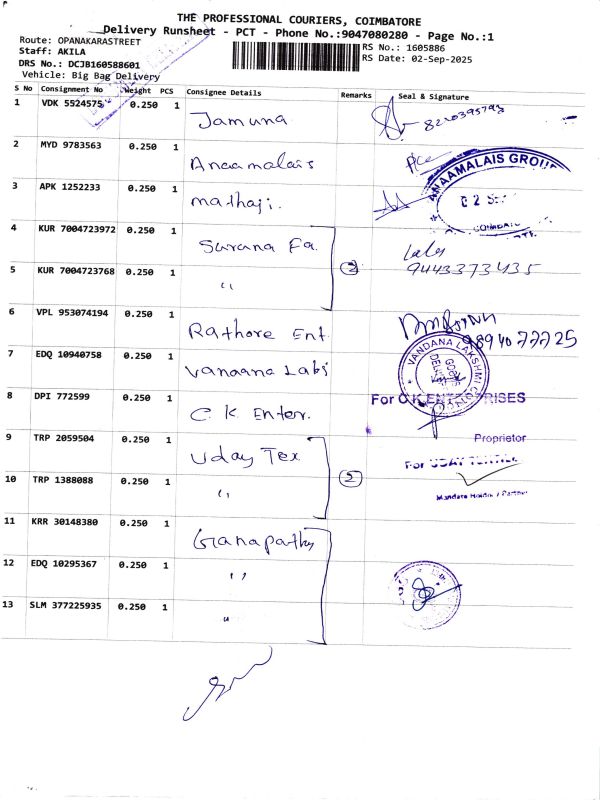 THE PROFESSIONAL COURIERS, COIMBATORE
Delivery Runsheet - PCT - Phone No.:9047080280 - Page No.:1
Route: OPANAKARASTREET
RS No.: 1605886
Staff: AKILA
RS Date: 02-Sep-2025
DRS No.: DCJB160588601
Vehicle: Big Bag Delivery
S No Consignment No Weight PCS Consignee Details Remarks Seal & Signature
1 VDK 5524575 0.250 1 Jamuna 8220395793
2 MYD 9783563 0.250 1 Anaamalais
ANAAMALAIS GROUP
3 APK 1252233 0.250 1 mathaji.
4 KUR 7004723972 0.250 1 Surana Fa.
2
9443373435
5 KUR 7004723768 0.250 1 "
6 VPL 953074194 0.250 1 Rathore Ent.
9894077725
7 EDQ 10940758 0.250 1 Vanaana Labs
VANDANA LAKSHMI
8 DPI 772599 0.250 1 C K Enter.
For C K ENTERPRISES
Proprietor
9 TRP 2059504 0.250 1 Uday Tex
For UDAY
2
10 TRP 1388088 0.250 1 "
11 KRR 30148380 0.250 1 Ganapathy
12 EDQ 10295367 0.250 1 "
13 SLM 377225935 0.250 1 "